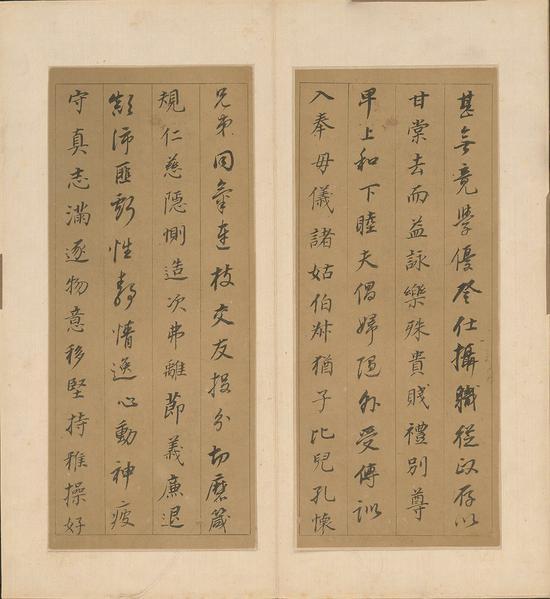 甚無竟學優登仕攝職從政存以
甘棠去而益詠樂殊貴賤禮別尊
卑上和下睦夫倡婦隨外受傅訓
入奉母儀諸姑伯叔猶子比兒孔懷
兄弟同氣連枝交友投分切磨箴
規仁慈隱惻造次弗離節義廉退
顛沛匪虧性靜情逸心動神疲
守真志滿逐物意移堅持雅操好